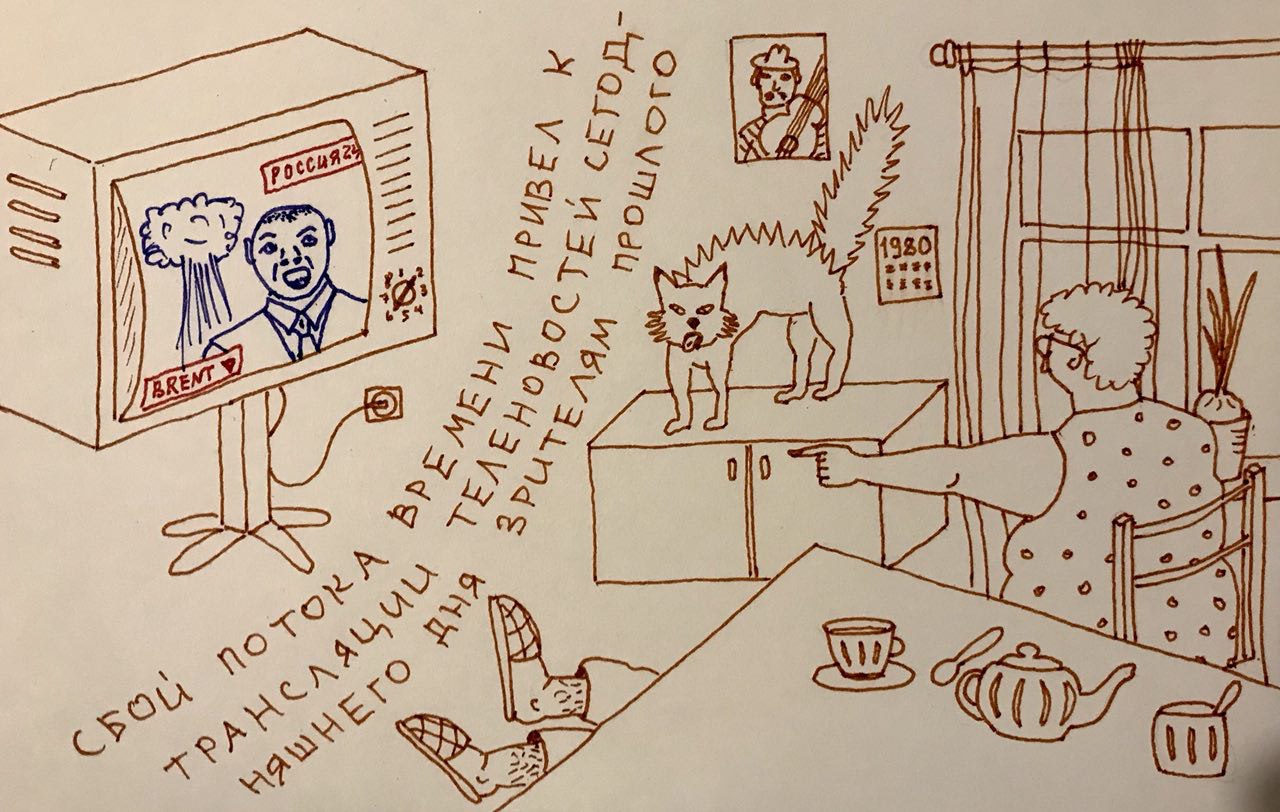 РОССИЯ24
BRENT
1 2 3 4 5 6 7 8
1980
СБОЙ ПОТОКА ВРЕМЕНИ ПРИВЕЛ К
ТРАНСЛЯЦИИ ТЕЛЕНОВОСТЕЙ СЕГОД-
НЯШНЕГО ДНЯ ЗРИТЕЛЯМ ПРОШЛОГО